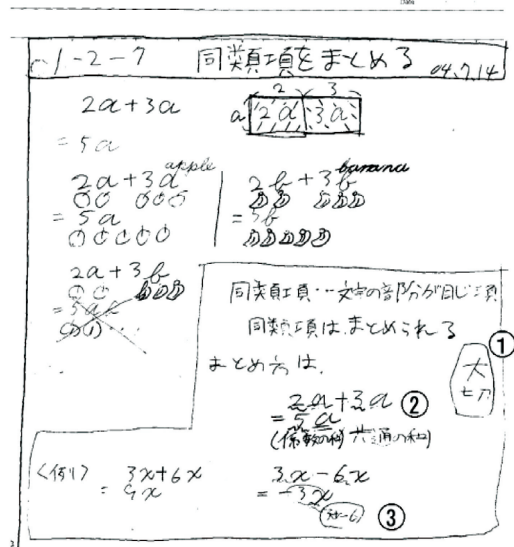 Date
1-2-7 同類項をまとめる 04.7.14
2a+3a
= 5a
2 3
a 2a 3a
apple
2a+3a
= 5a
banana
2b+3b
= 5b
2a+3b
= 5ab
同類項・・文字の部分が同じ項
同類項は、まとめられる
まとめ方は、
大切 ①
2a+3a ②
= 5a
(係数の和) 共通の
<例1> 3x+6x
= 9x
3x-6x
= -3x
③
2